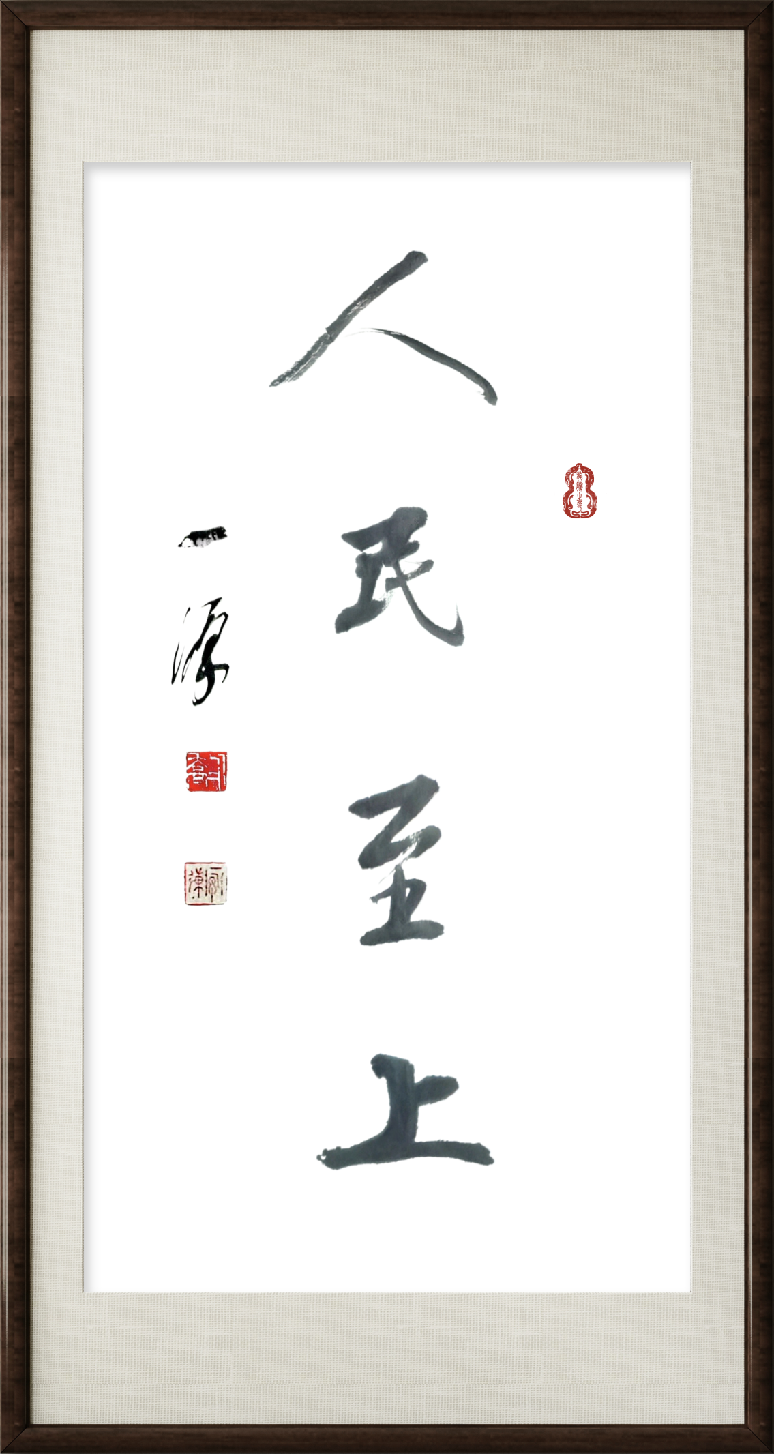 人民至上
一源